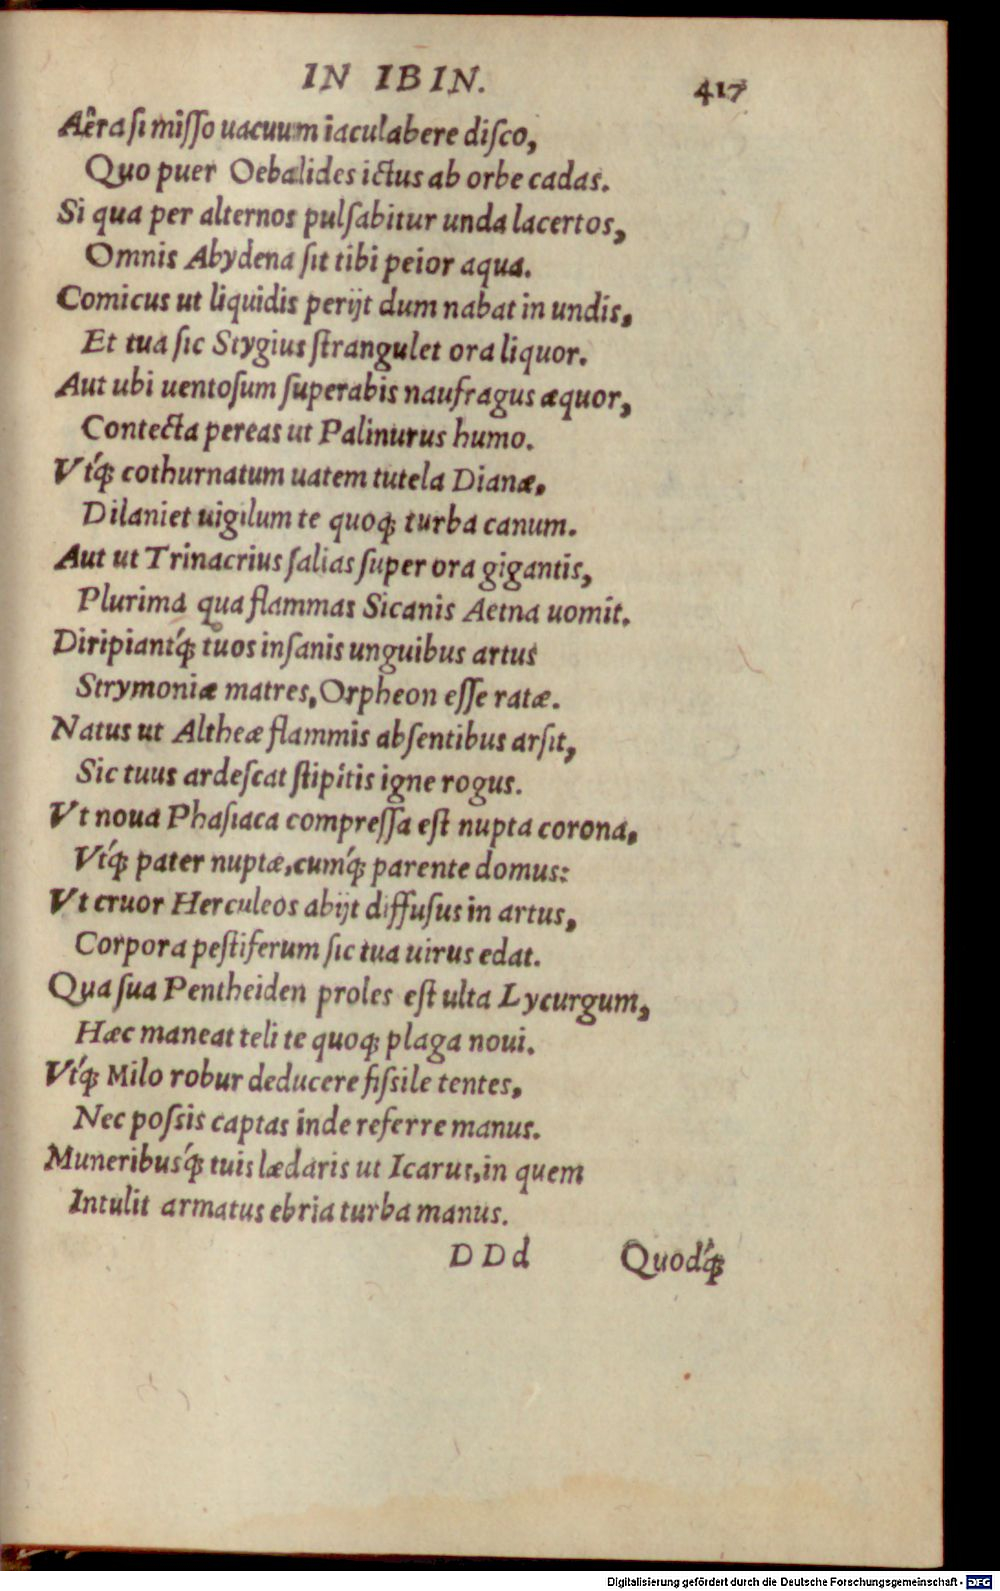 IN IBIN. 417
Aëra si misso uacuum iaculabere disco,
Quo puer Oebalides ictus ab orbe cadas.
Si qua per alternos pulsabitur unda lacertos,
Omnis Abydena sit tibi peior aqua.
Comicus ut liquidis perijt dum nabat in undis,
Et tua sic Stygius strangulet ora liquor.
Aut ubi uentosum superabis naufragus æquor,
Contecta pereas ut Palinurus humo.
Vtq́; cothurnatum uatem tutela Dianæ,
Dilaniet uigilum te quoq; turba canum.
Aut ut Trinacrius salias super ora gigantis,
Plurima qua flammas Sicanis Aetna uomit.
Diripiantq́; tuos insanis unguibus artus
Strymoniæ matres, Orpheon esse ratæ.
Natus ut Altheæ flammis absentibus arsit,
Sic tuus ardescat stipitis igne rogus.
Vt noua Phasiaca compressa est nupta corona,
Vtq́; pater nuptæ, cumq́; parente domus:
Vt cruor Herculeos abijt diffusus in artus,
Corpora pestiferum sic tua uirus edat.
Qua sua Pentheiden proles est ulta Lycurgum,
Hæc maneat teli te quoq; plaga noui.
Vtq́; Milo robur deducere fissile tentes,
Nec possis captas inde referre manus.
Muneribusq́; tuis lædaris ut Icarus, in quem
Intulit armatus ebria turba manus.
DDd Quodq́;
Digitalisierung gefördert durch die Deutsche Forschungsgemeinschaft - DFG